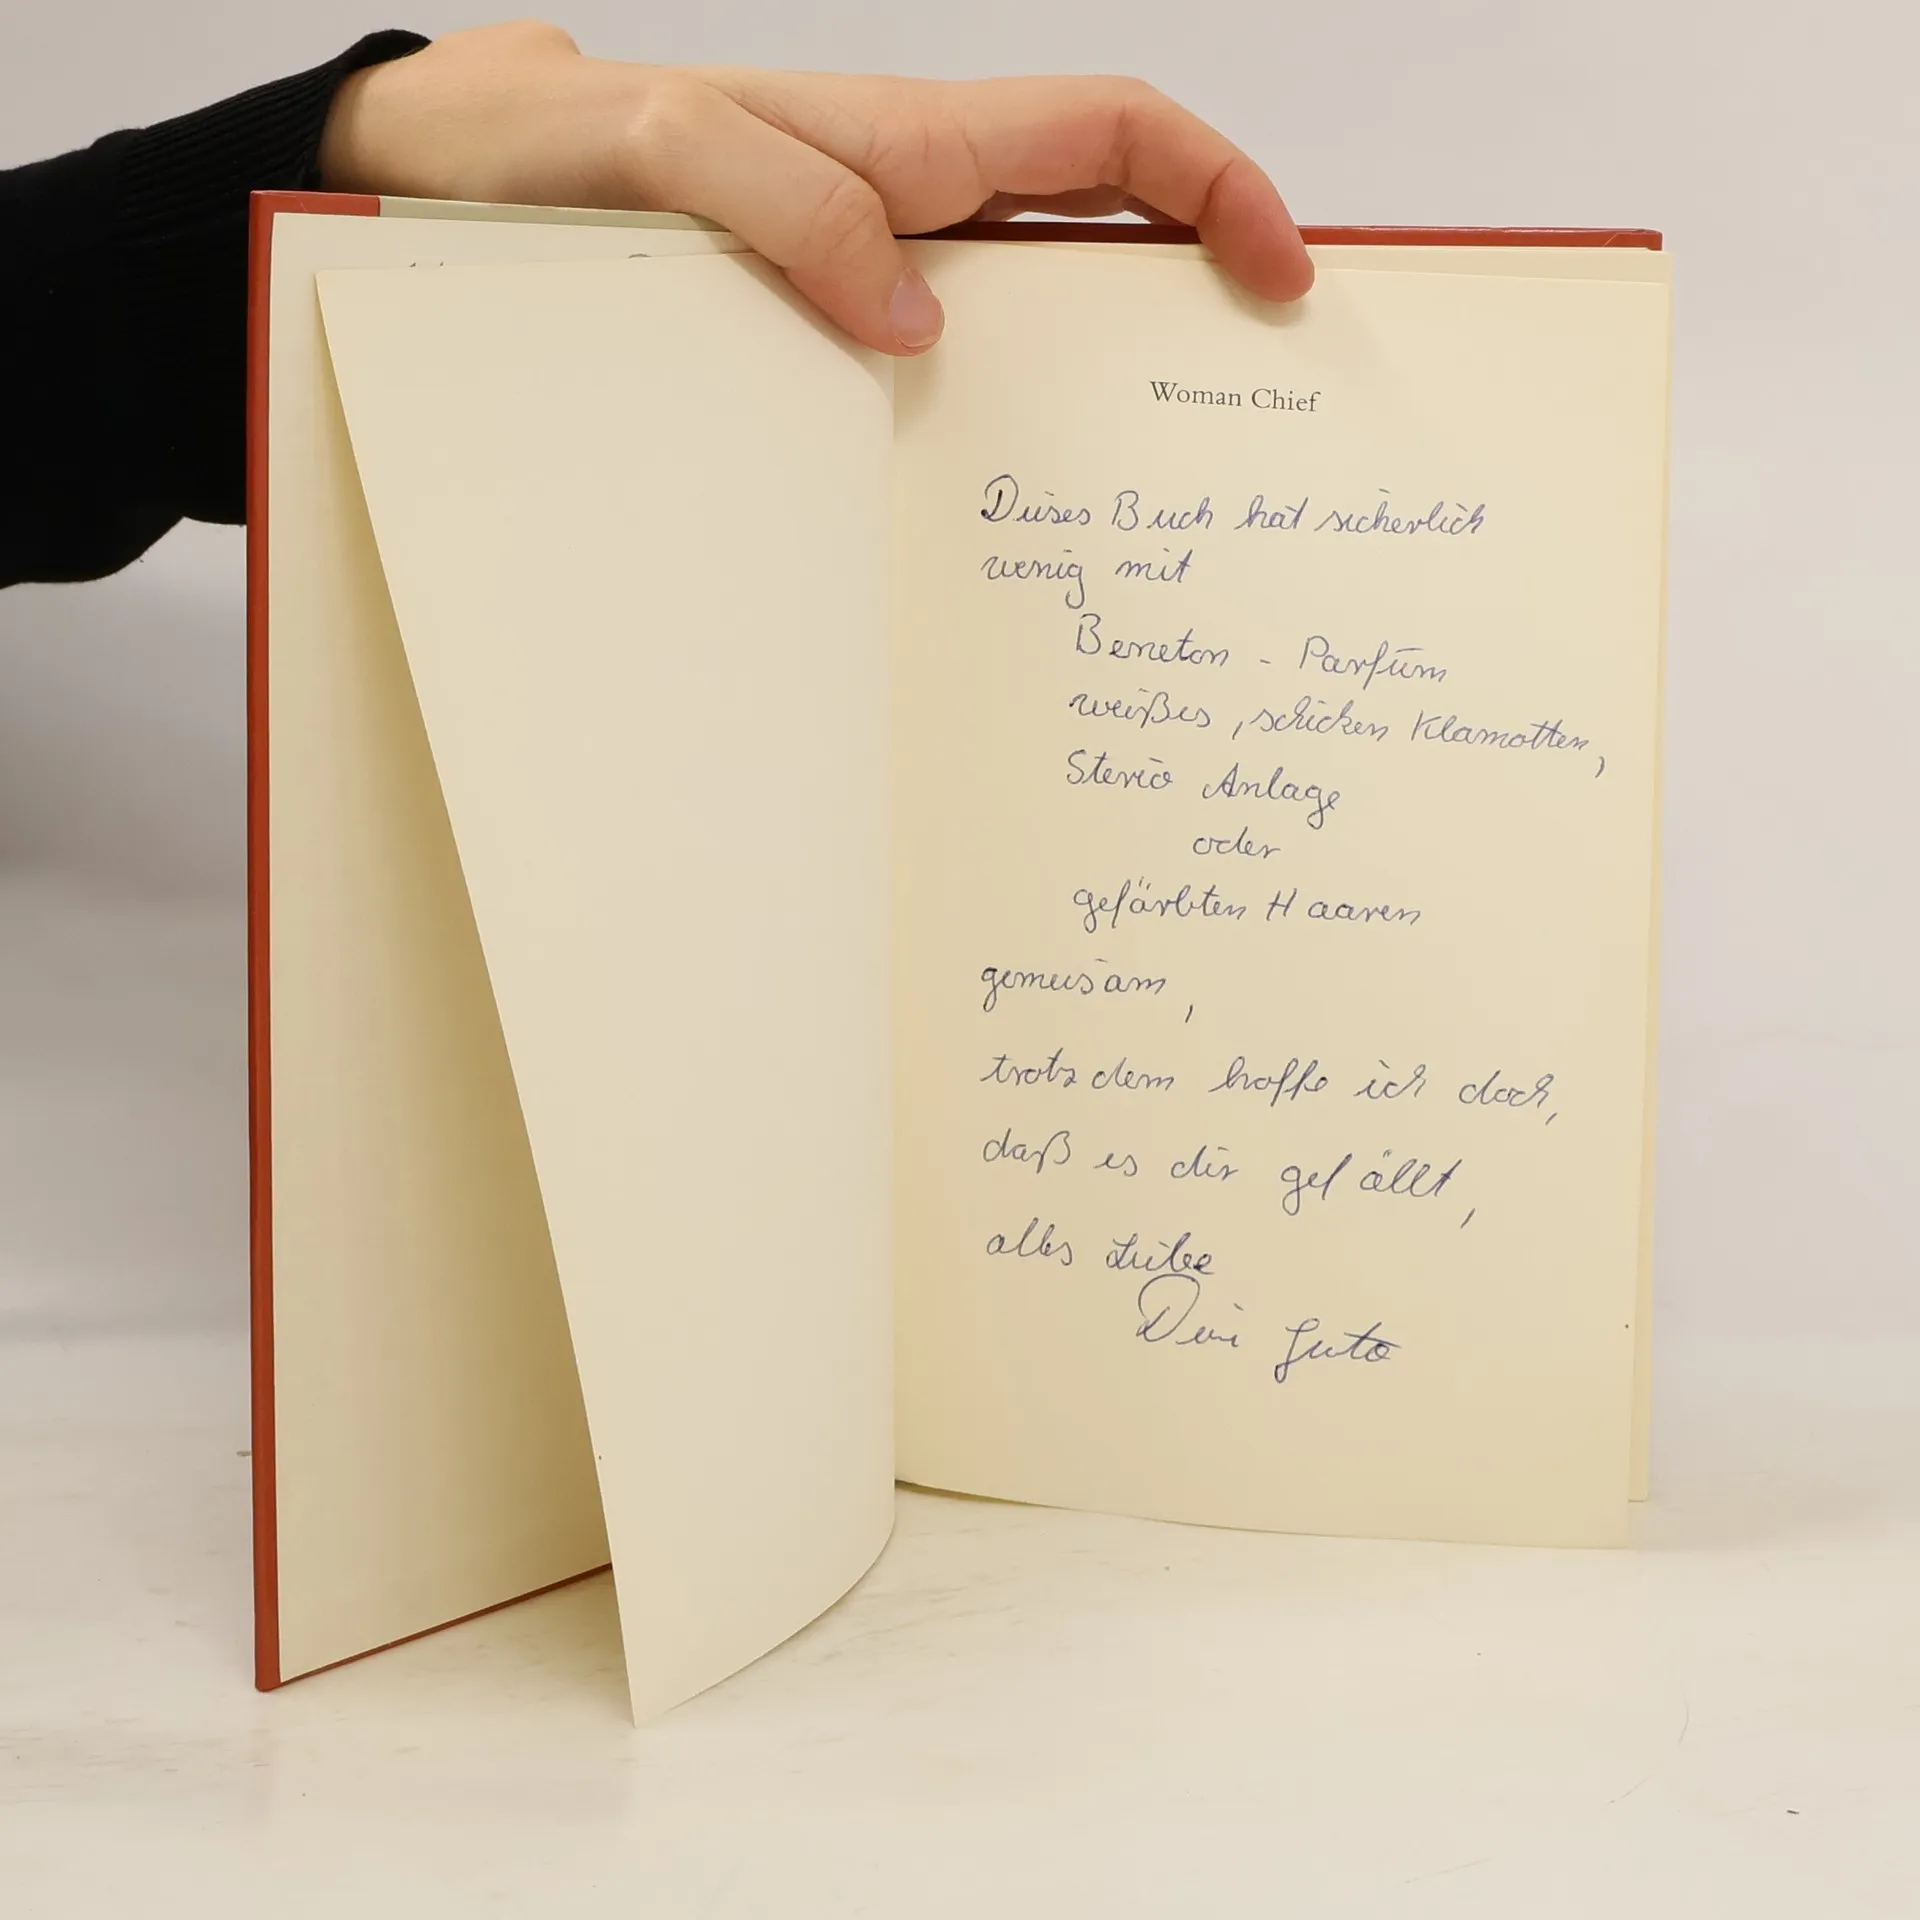 Woman Chief
Dieses Buch hat sicherlich
wenig mit
Beneton - Parfüm
weißes, schicken Klamotten,
Stereo Anlage
oder
gefärbten Haaren
gemeisam,
trotzdem hoffe ich doch,
daß es dir gefällt,
alles Liebe